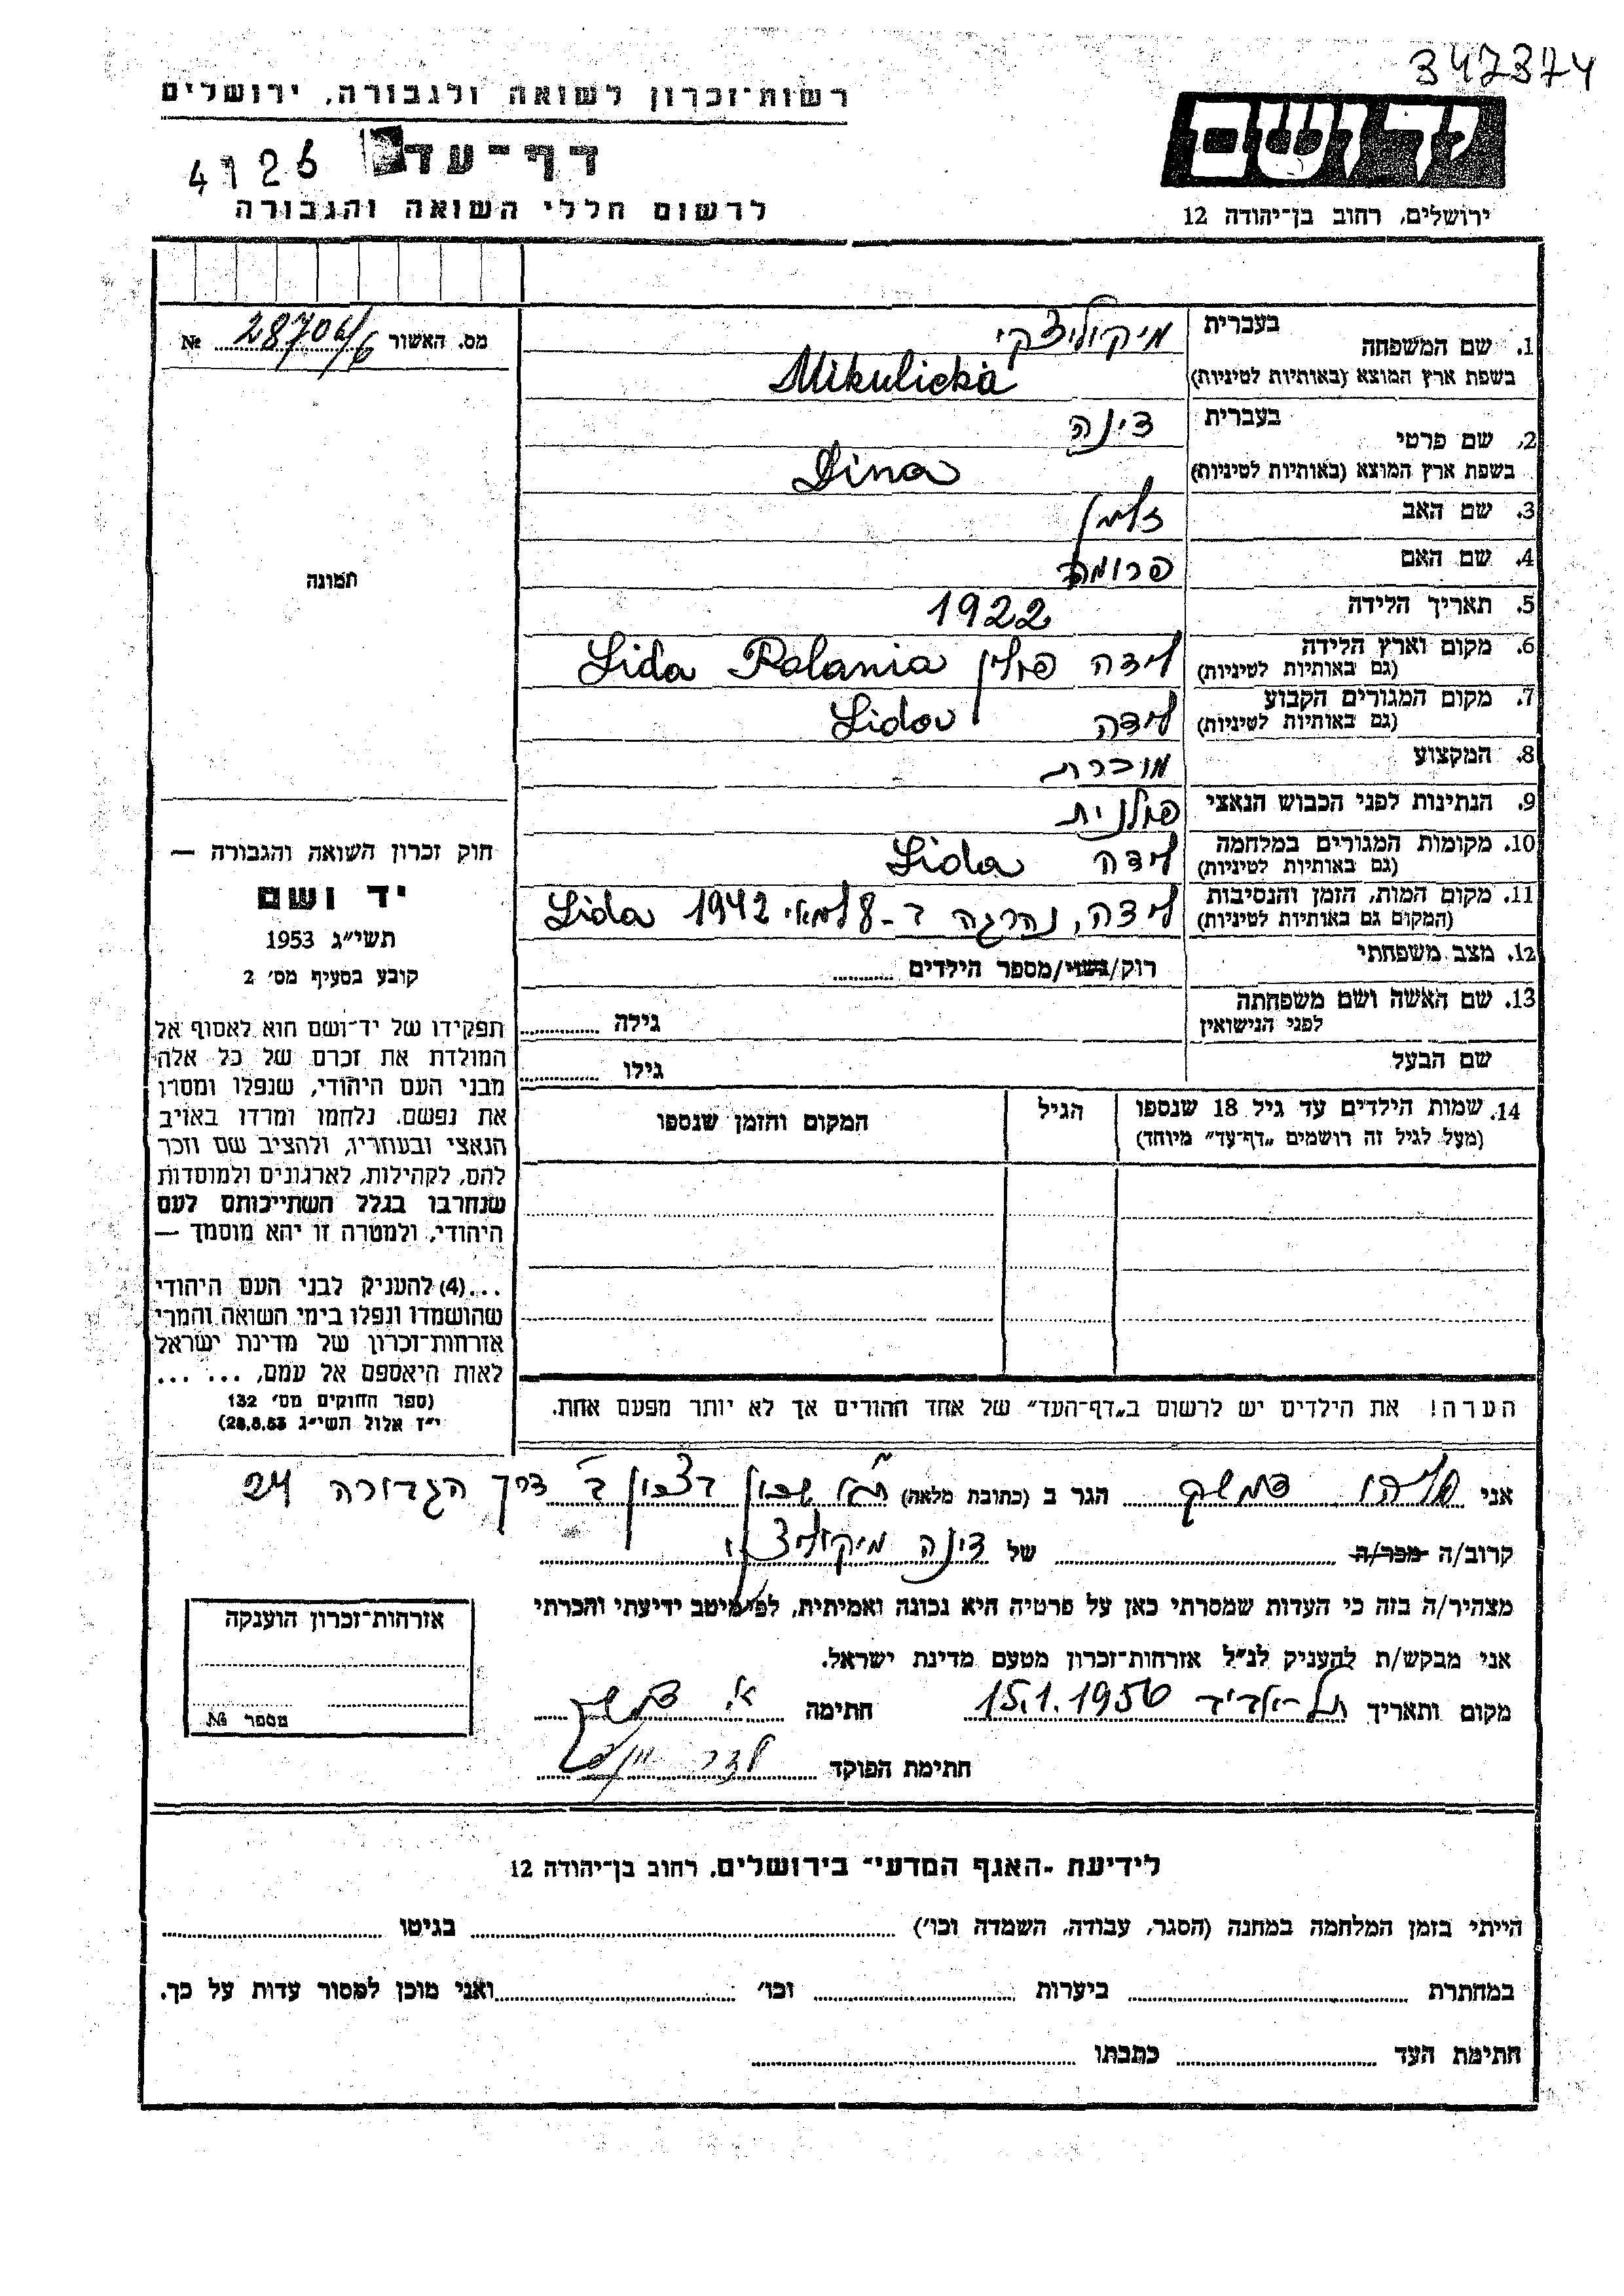 347374
רשות־זכרון לשואה ולגבורה, ירושלים
יד ושם
דף־עד
4126
לרשום חללי השואה והגבורה
ירושלים, רחוב בן־יהודה 12
מס. האשור 28706/6 №
1. שם המשפחה בעברית מיקוליצקי
בשפת ארץ המוצא (באותיות לטיניות) Mikulicka
2. שם פרטי בעברית דינה
בשפת ארץ המוצא (באותיות לטיניות) Dina
3. שם האב זלמן
4. שם האם פרומה
5. תאריך הלידה 1922
6. מקום וארץ הלידה (גם באותיות לטיניות) לידה פולין Lida Polania
7. מקום המגורים הקבוע (גם באותיות לטיניות) לידה Lida
8. המקצוע מוכרת
9. הנתינות לפני הכבוש הנאצי פולנית
10. מקומות המגורים במלחמה (גם באותיות לטיניות) לידה Lida
11. מקום המות, הזמן והנסיבות (המקום גם באותיות לטיניות) לידה, נהרגה ב-8 למאי 1942 Lida
12. מצב משפחתי רוק/נשוי/מספר הילדים
13. שם האשה ושם משפחתה לפני הנישואין גילה
שם הבעל גילו
14. שמות הילדים עד גיל 18 שנספו הגיל המקום והזמן שנספו
(מעל לגיל זה רושמים „דף־עד” מיוחד)
הערה! את הילדים יש לרשום ב„דף־העד” של אחד ההורים אך לא יותר מפעם אחת.
תמונה
חוק זכרון השואה והגבורה —
יד ושם
תשי״ג 1953
קובע בסעיף מס׳ 2
תפקידו של יד־ושם הוא לאסוף אל
המולדת את זכרם של כל אלה
מבני העם היהודי, שנפלו ומסרו
את נפשם, נלחמו ומרדו באויב
הנאצי ובעוזריו, ולהציב שם וזכר
להם, לקהילות, לארגונים ולמוסדות
שנחרבו בגלל השתייכותם לעם
היהודי, ולמטרה זו יהא מוסמך —
...(4) להעניק לבני העם היהודי
שהושמדו ונפלו בימי השואה והמרי
אזרחות־זכרון של מדינת ישראל
לאות היאספם אל עמם, ... ...
(ספר החוקים מס׳ 132
י״ז אלול תשי״ג 28.8.53)
אני אליהו דמשק הגר ב (כתובת מלאה) שכון ב׳ דרך הגדורה 24
קרוב/ה מכר/ה של דינה מיקוליצקי
מצהיר/ה בזה כי העדות שמסרתי כאן על פרטיה היא נכונה ואמיתית, לפי מיטב ידיעתי והכרתי
אני מבקש/ת להעניק לנ״ל אזרחות־זכרון מטעם מדינת ישראל.
מקום ותאריך תל־אביב 15.1.1956 חתימה א. דמשק
חתימת הפוקד
אזרחות־זכרון הוענקה
מספר №
לידיעת „האגף המדעי” בירושלים, רחוב בן־יהודה 12
הייתי בזמן המלחמה במחנה (הסגר, עבודה, השמדה וכו׳) בגיטו
במחתרת ביערות וכו׳ ואני מוכן למסור עדות על כך.
חתימת העד כתבתו